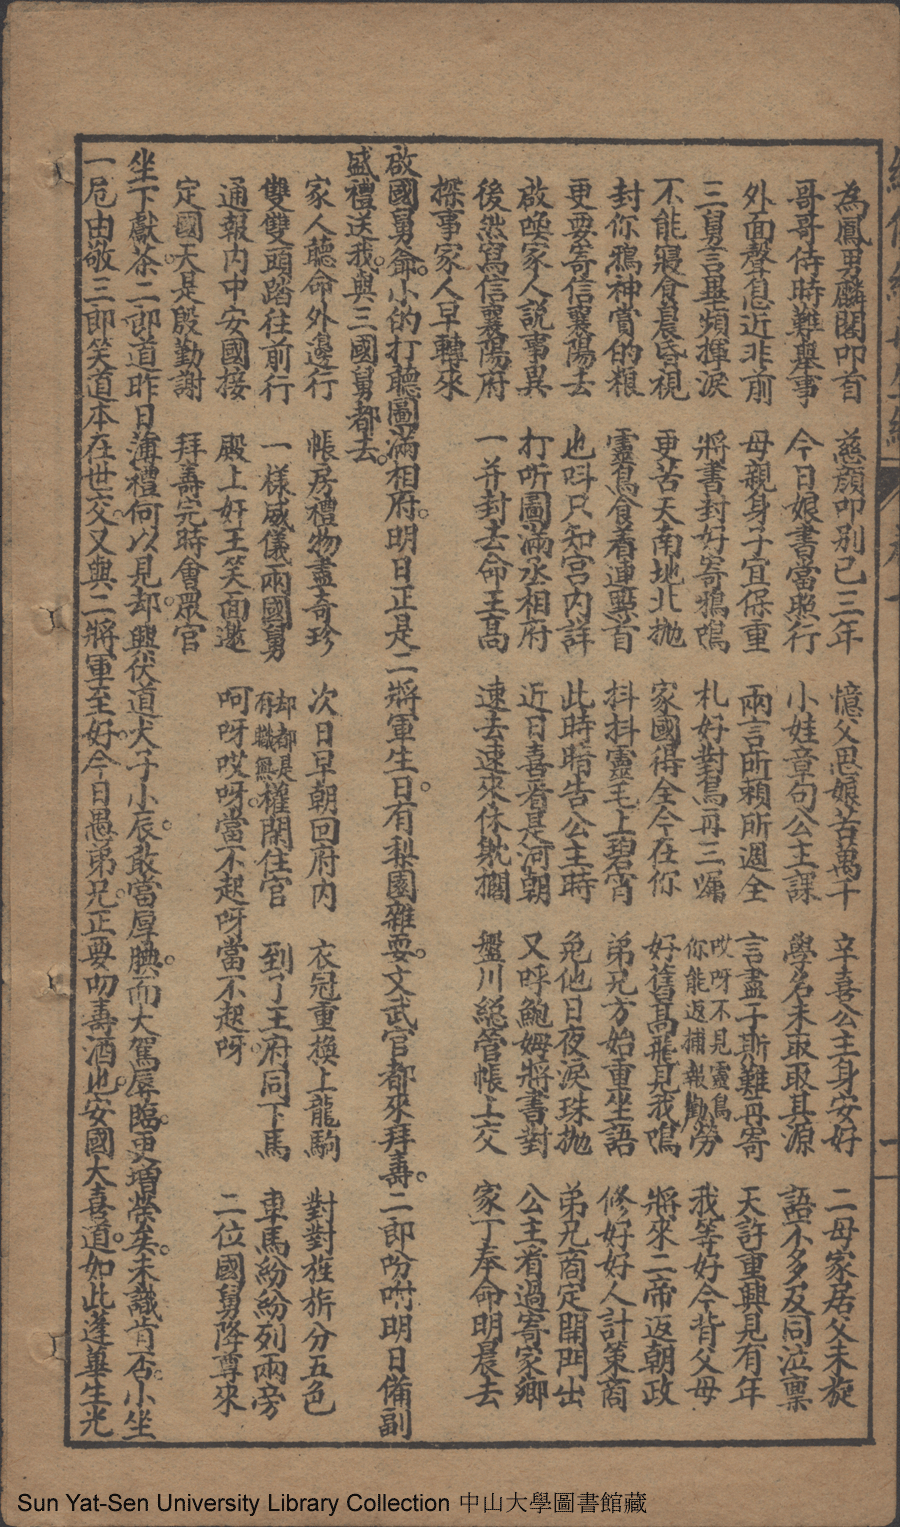 為鳳男麟閣叩首 慈顏叩别已三年 憶父思娘苦萬千 辛喜公主身安好 二母家居父未旋
哥哥侍時難舉事 今日娘書當照行 小娃章句公主課 學名未取取其源 語不多及同泣禀
外面聲息近非前 母親身子宜保重 兩言所賴所週全 言盡于斯難再寄 天許重興見有年
三舅言畢頻揮淚 將書封好寄鴉鳴 札好對鳥再三囑 哎呀不見靈鳥你能返捕報勤勞 我等好今背父母
不能寢食晨昏視 更苦天南地北拋 家國得全今在你 好舊高飛見我鳴 將來二帝返朝政
封你鴉神賞的粮 靈鳥食着連點首 抖抖靈毛上碧宵 弟兄方始重坐語 修好好人計策商
更要寄信襄陽去 也呌只知宫内詳 此時暗告公主時 免他日夜淚珠拋 弟兄商定開門出
啟喚家人說事異 打听圖滿丞相府 近日喜看是河朝 又呼鮑姆將書對 公主看過寄家鄉
後然寫信襄陽府 一并封去命王高 速去速來休躭擱 盤川総管帳上交 家丁奉命明晨去
探事家人早轉來
啟國舅爺小的打聽圖滿相府明日正是二將軍生日有梨園雜耍文武官都來拜壽二郎吩咐明日備副
盛禮送我與三國舅都去
家人聽命外邊行 帳房禮物盡奇珍 次日早朝回府内 衣冠重換上龍駒 對對旌旂分五色
雙雙頭踏往前行 一樣威儀兩國舅 却都是有職無權閑住官 到了王府同下馬 車馬紛紛列兩旁
通報内中安國接 殿上奸王笑面邀 呵呀哎呀當不起呀當不起呀 二位國舅降尊來
定國天是殷勤謝 拜壽完時會眾官
坐下獻茶二郎道昨日薄禮何以見却興伏道犬子小辰敢當厚腆而大駕辱臨更增榮矣未識肯否小坐
一卮由敬三郎笑道本在世交又與二將軍至好今日愚弟兄正要叨壽酒也安國大喜道如此蓬蓽生光
Sun Yat-Sen University Library Collection 中山大學圖書館藏